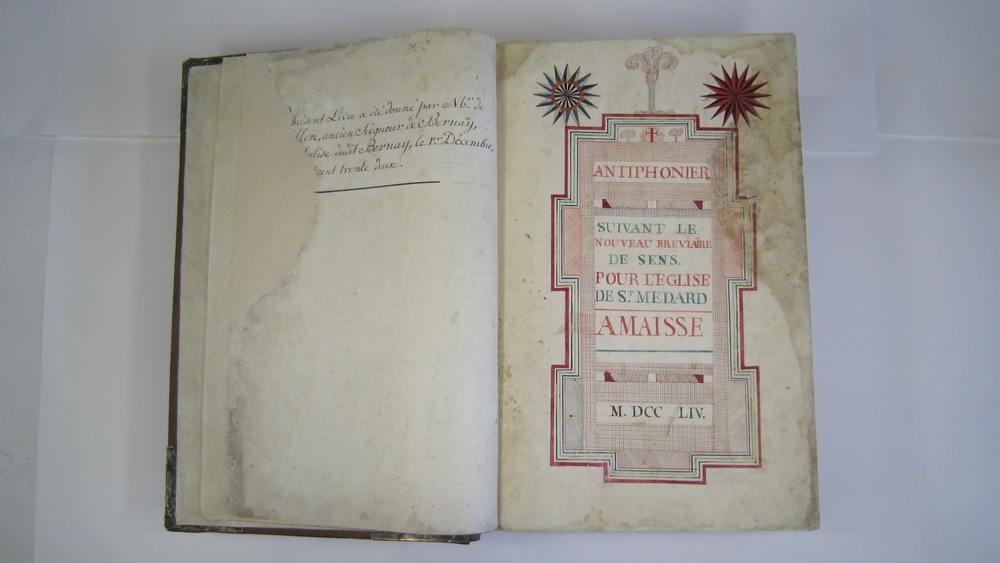 Présent Livre a été donné par Mr. de
ancien Seigneur de Bernay,
dudit Bernay, le 1er. Décembre,
cent trente deux.
ANTIPHONIER
SUIVANT LE
NOUVEAU BREVIAIRE
DE SENS.
POUR L'EGLISE
DE St. MEDARD
AMAISSE
M. DCC LIV.